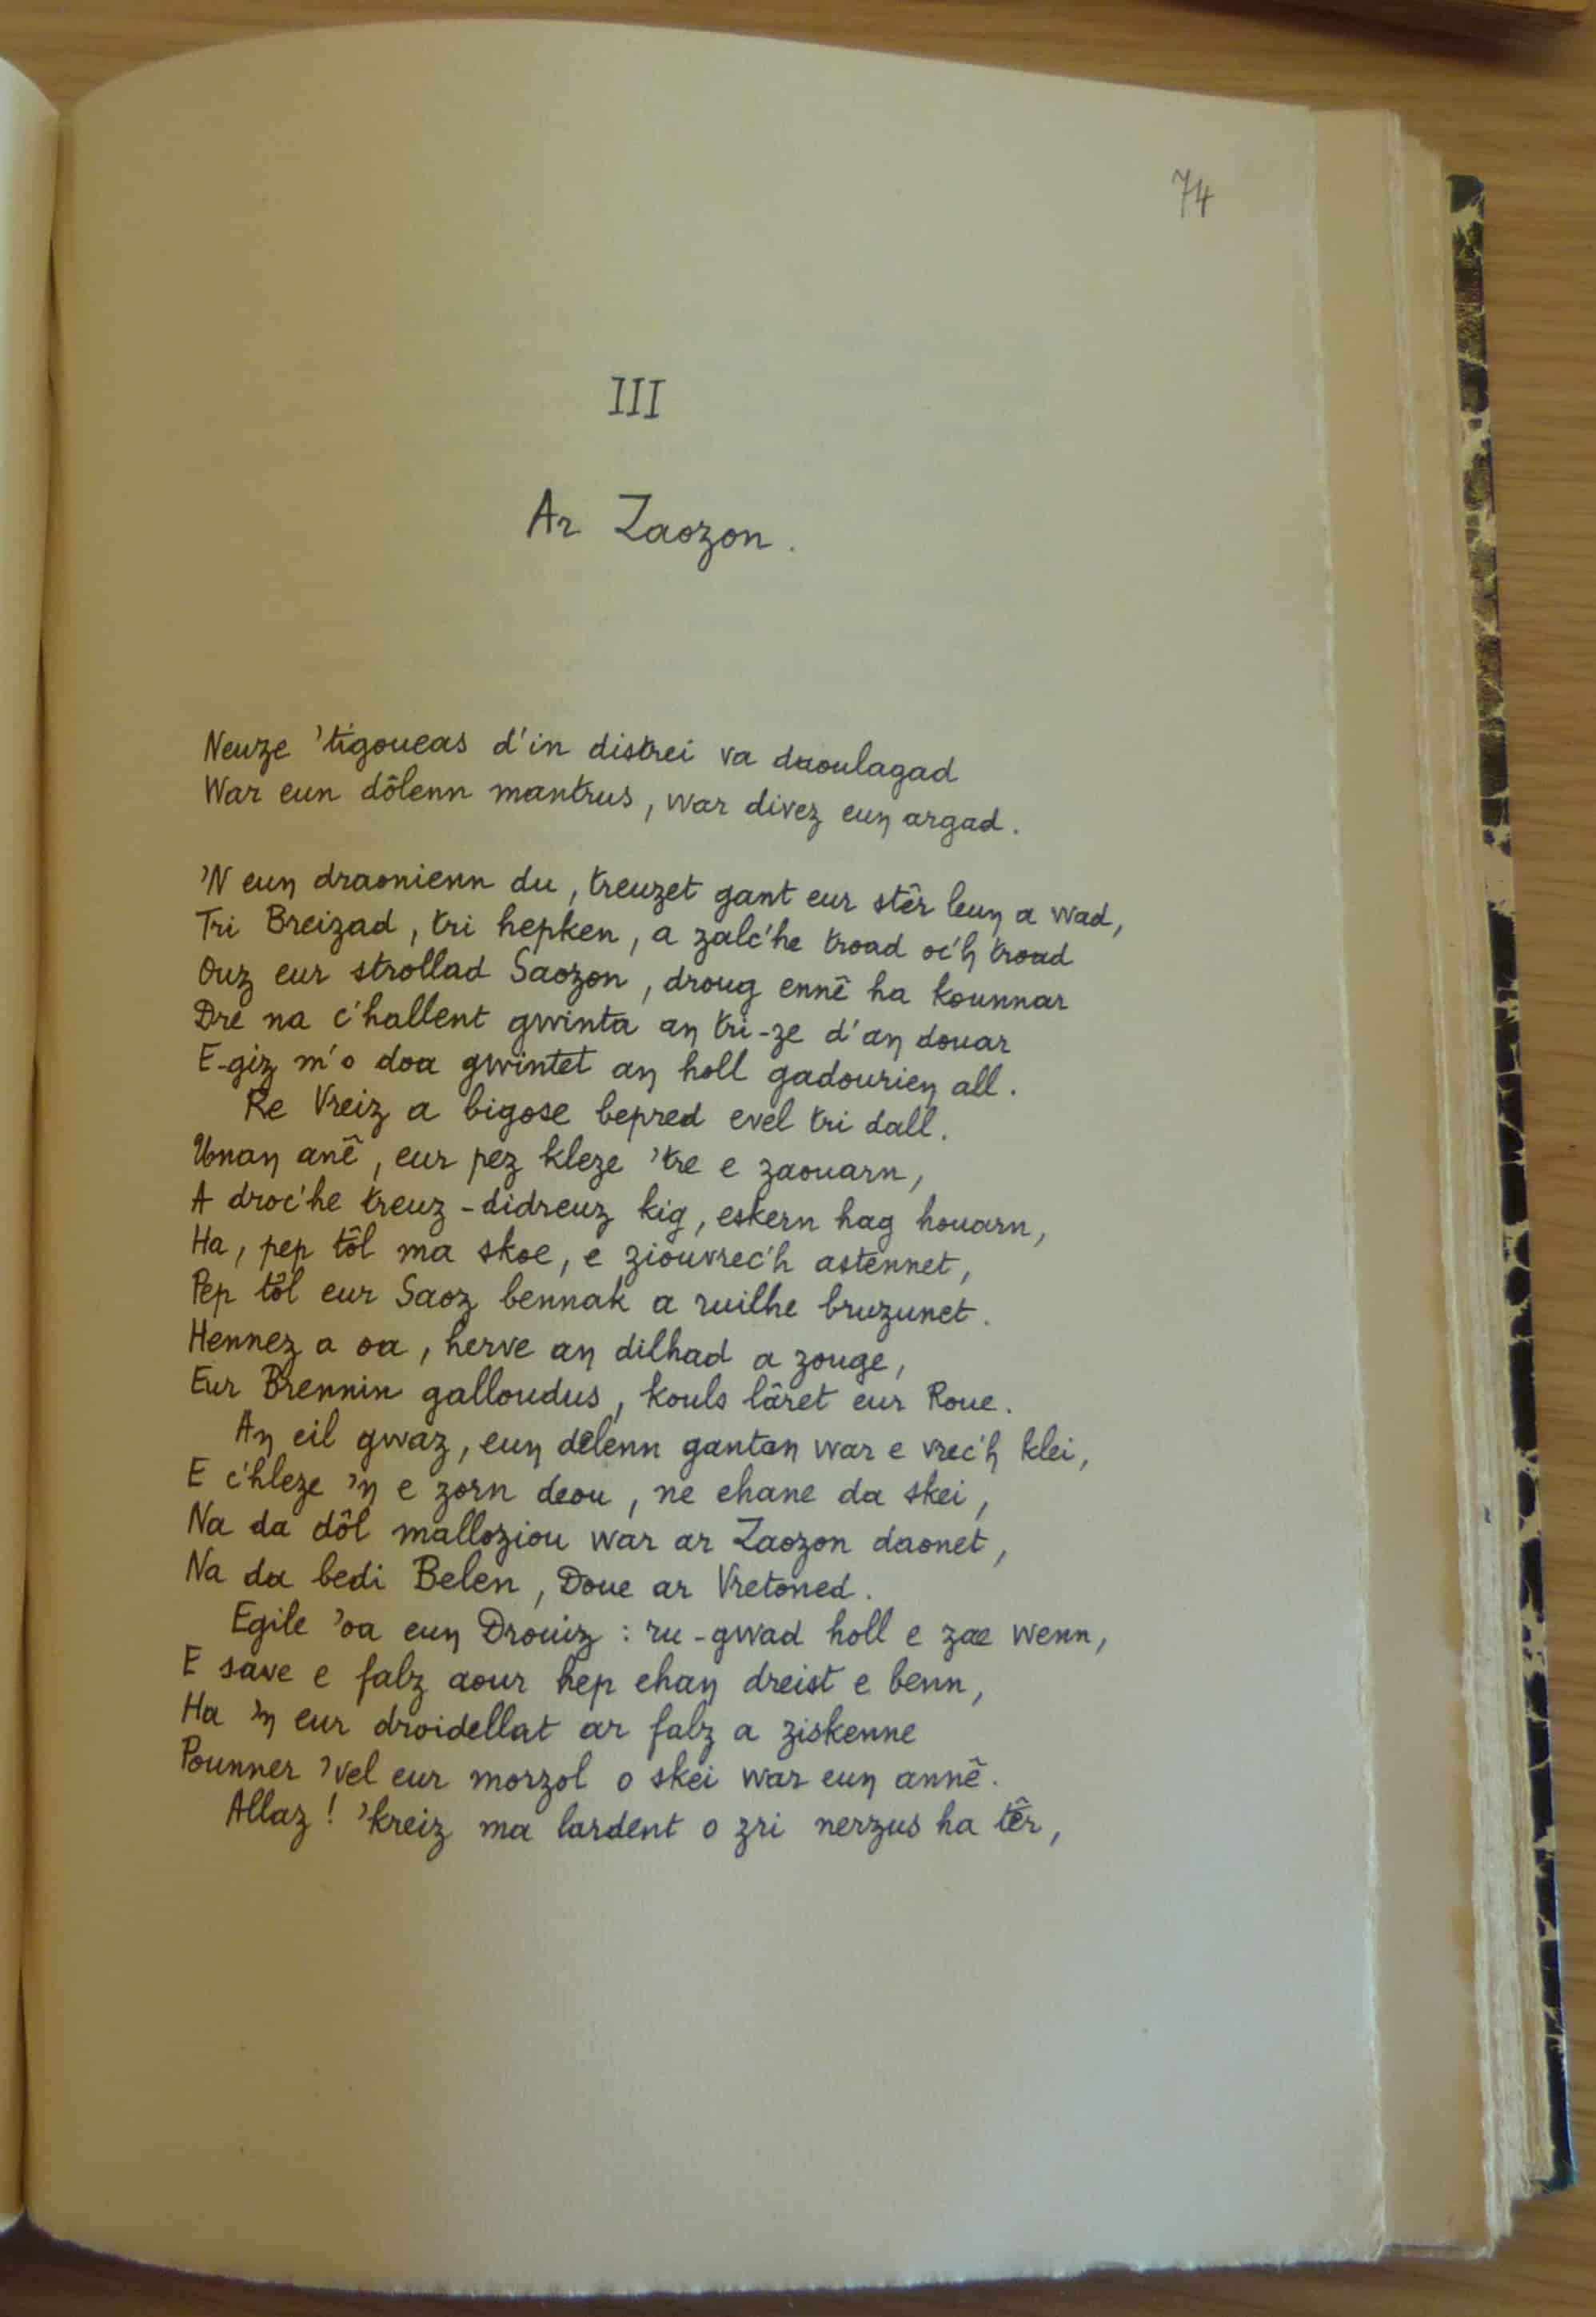 74
III
Ar Zaozon.
Neuze 'tigoueas d'in distrei va daoulagad
War eun dôlenn mantrus, war divez euṉ argad.
'N euṉ draonienn du, treuzet gant eur stêr leuṉ a wad,
Tri Breizad, tri hepken, a zalc'he troad oc'h troad
Ouz eur strollad Saozon, droug ennê ha kounnar
Dre na c'hallent gwinta aṉ tri-ze d'aṉ douar
E-giz m'o doa gwintet aṉ holl gadourieṉ all.
Re Vreiz a bigose bepred evel tri dall.
Unaṉ anê, eur pez kleze 'tre e zaouarn,
A droc'he treuz-didreuz kig, eskern hag houarn,
Ha, pep tôl ma skoe, e ziouvrec'h astennet,
Pep tôl eur Saoz bennak a ruilhe bruzunet.
Hennez a oa, herve aṉ dilhad a zouge,
Eur Brennin galloudus, kouls lâret eur Roue.
Aṉ eil gwaz, euṉ delenn gantaṉ war e vrec'h klei,
E c'hleze 'ṉ e zorn deou, ne ehane da skei,
Na da dôl malloziou war ar Zaozon daonet,
Na da bedi Belen, Doue ar Vretoned.
Egile 'oa euṉ Drouiz : ru-gwad holl e zae wenn,
E save e falz aour hep ehaṉ dreist e benn,
Ha 'ṉ eur droidellat ar falz a ziskenne
Pounner 'vel eur morzol o skei war euṉ annê.
Allaz ! 'kreiz ma lardent o zri nerzus ha têr,